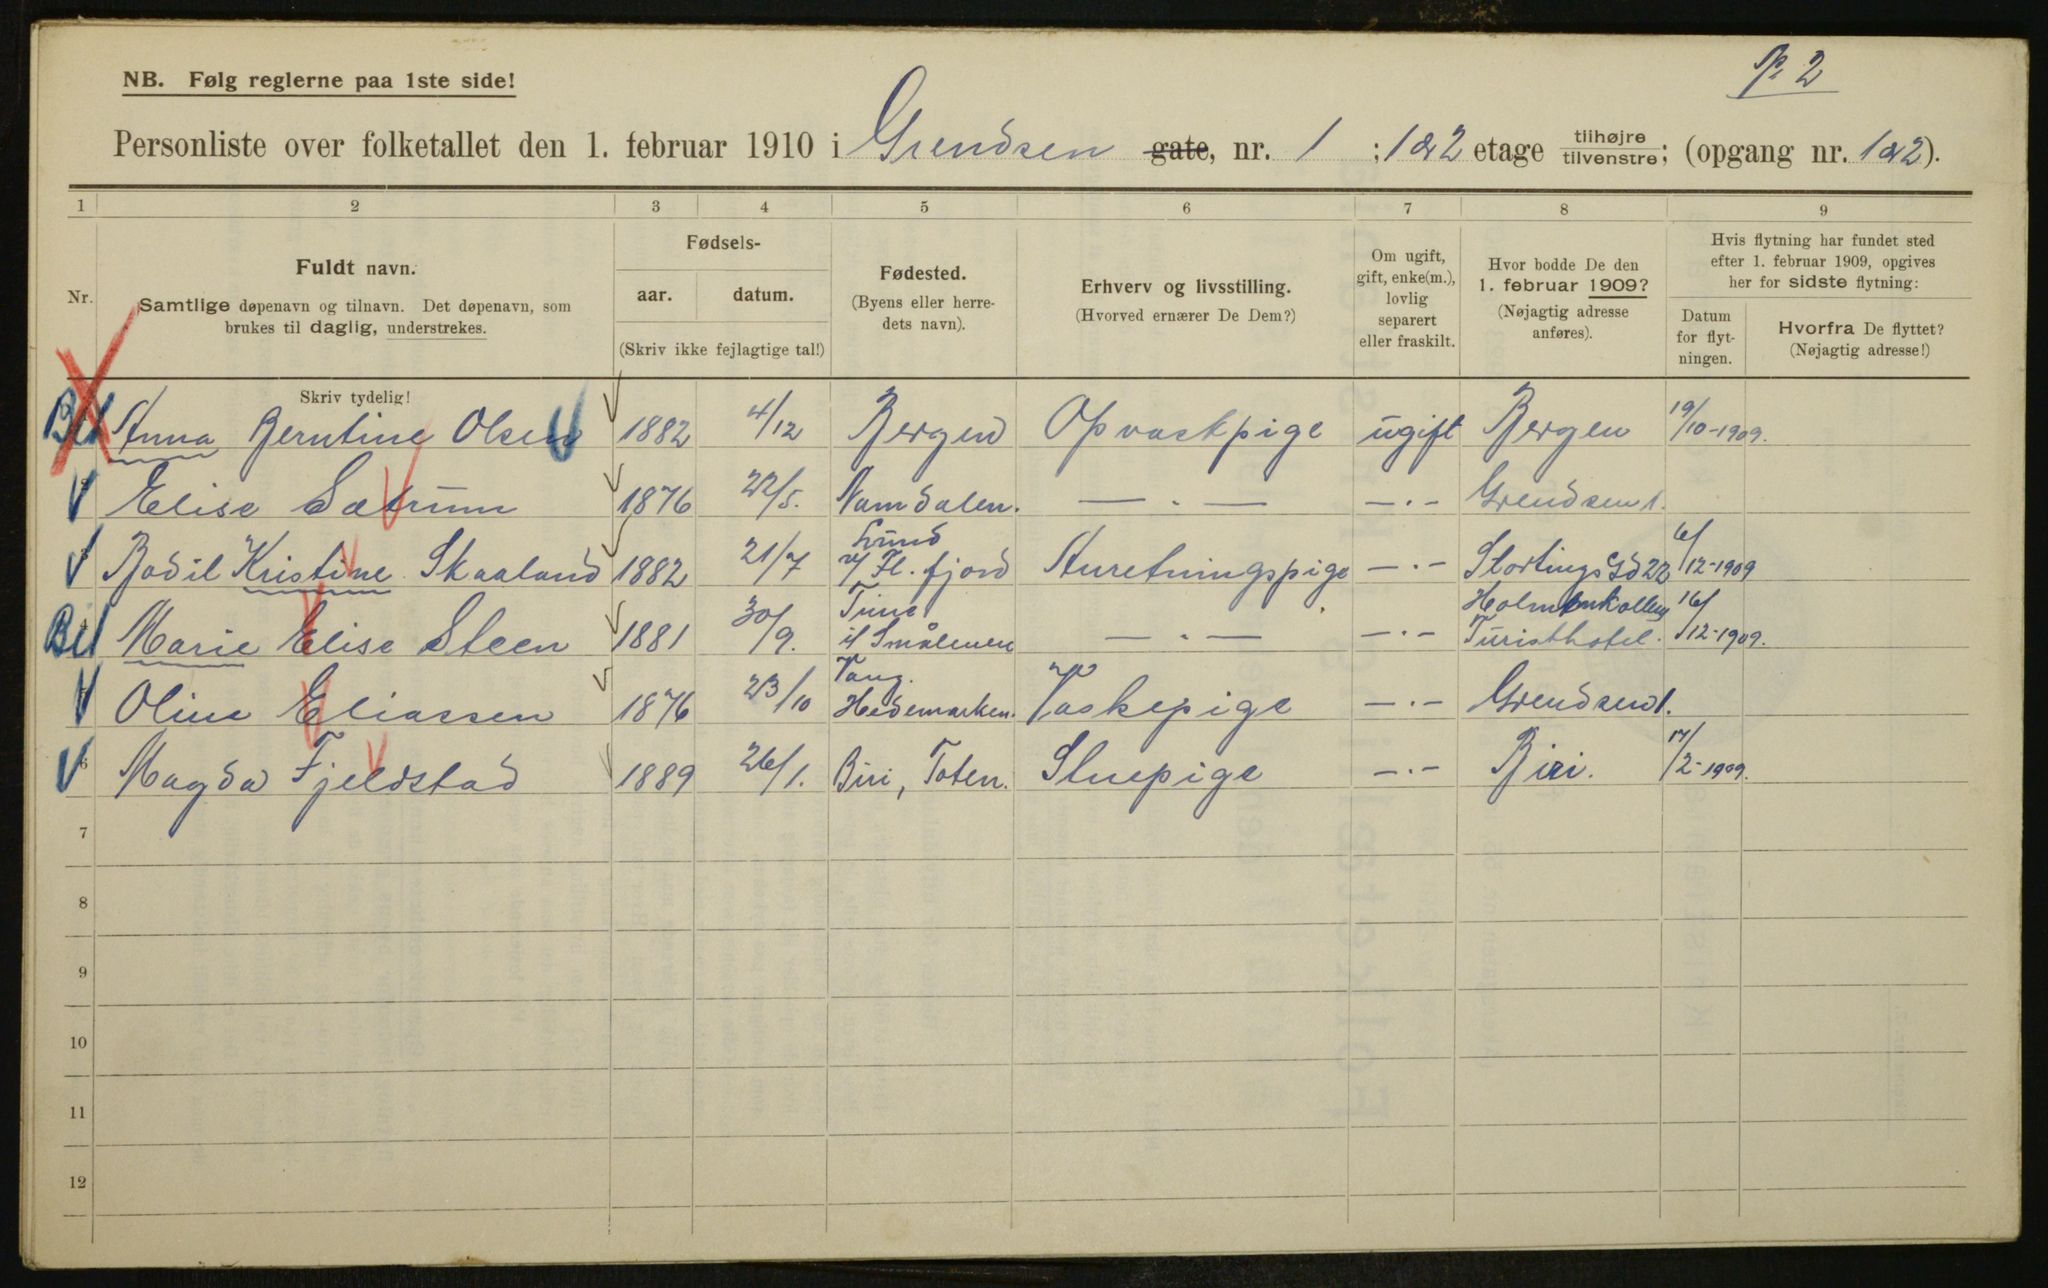 P. 2
NB. Følg reglerne paa 1ste side!
Personliste over folketallet den 1. februar 1910 i Grendsen gate, nr. 1 ; 1 & 2 etage tilhøjre tilvenstre; (opgang nr. 1 & 2).
1 2 3 4 5 6 7 8 9
Nr.
Fuldt navn.
Samtlige døpenavn og tilnavn. Det døpenavn, som
brukes til daglig, understrekes.
Skriv tydelig!
Fødsels-
aar. datum.
(Skriv ikke fejlagtige tal!)
Fødested.
(Byens eller herre-
dets navn).
Erhverv og livsstilling.
(Hvorved ernærer De Dem?)
Om ugift,
gift, enke(m.),
lovlig
separert
eller fraskilt.
Hvor bodde De den
1. februar 1909?
(Nøjagtig adresse
anføres).
Hvis flytning har fundet sted
efter 1. februar 1909, opgives
her for sidste flytning:
Datum
for flyt-
ningen.
Hvorfra De flyttet?
(Nøjagtig adresse!)
Anna Berntine Olsen 1882 4/12 Bergen Opvaskpige ugift Bergen 19/10-1909.
Elise Sætrum 1876 22/5. Namdalen. — " — — . — Grendsen 1.
Bodil Kristine Skaaland 1882 21/7 Lund v/ Fl. fjord Anretningspige — . — Stortingsgd 22 6/12-1909
4 Marie Elise Steen 1881 30/9. Tune i Smålenene — " — — . — Holmenkollens Turisthotel. 16/12-1909.
Oline Eliassen 1876 23/10 Vang. Hedemarken. Vaskepige — . — Grendsen 1.
6 Magda Fjeldstad 1889 26/1. Biri, Toten. Stuepige — . — Biri. 17/2-1909.
7
8
9
10
11
12